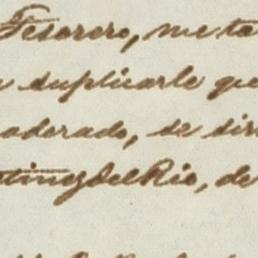 Tesorero, me ta
duplicarle que
adorado, se dir
tinez del Rio, de